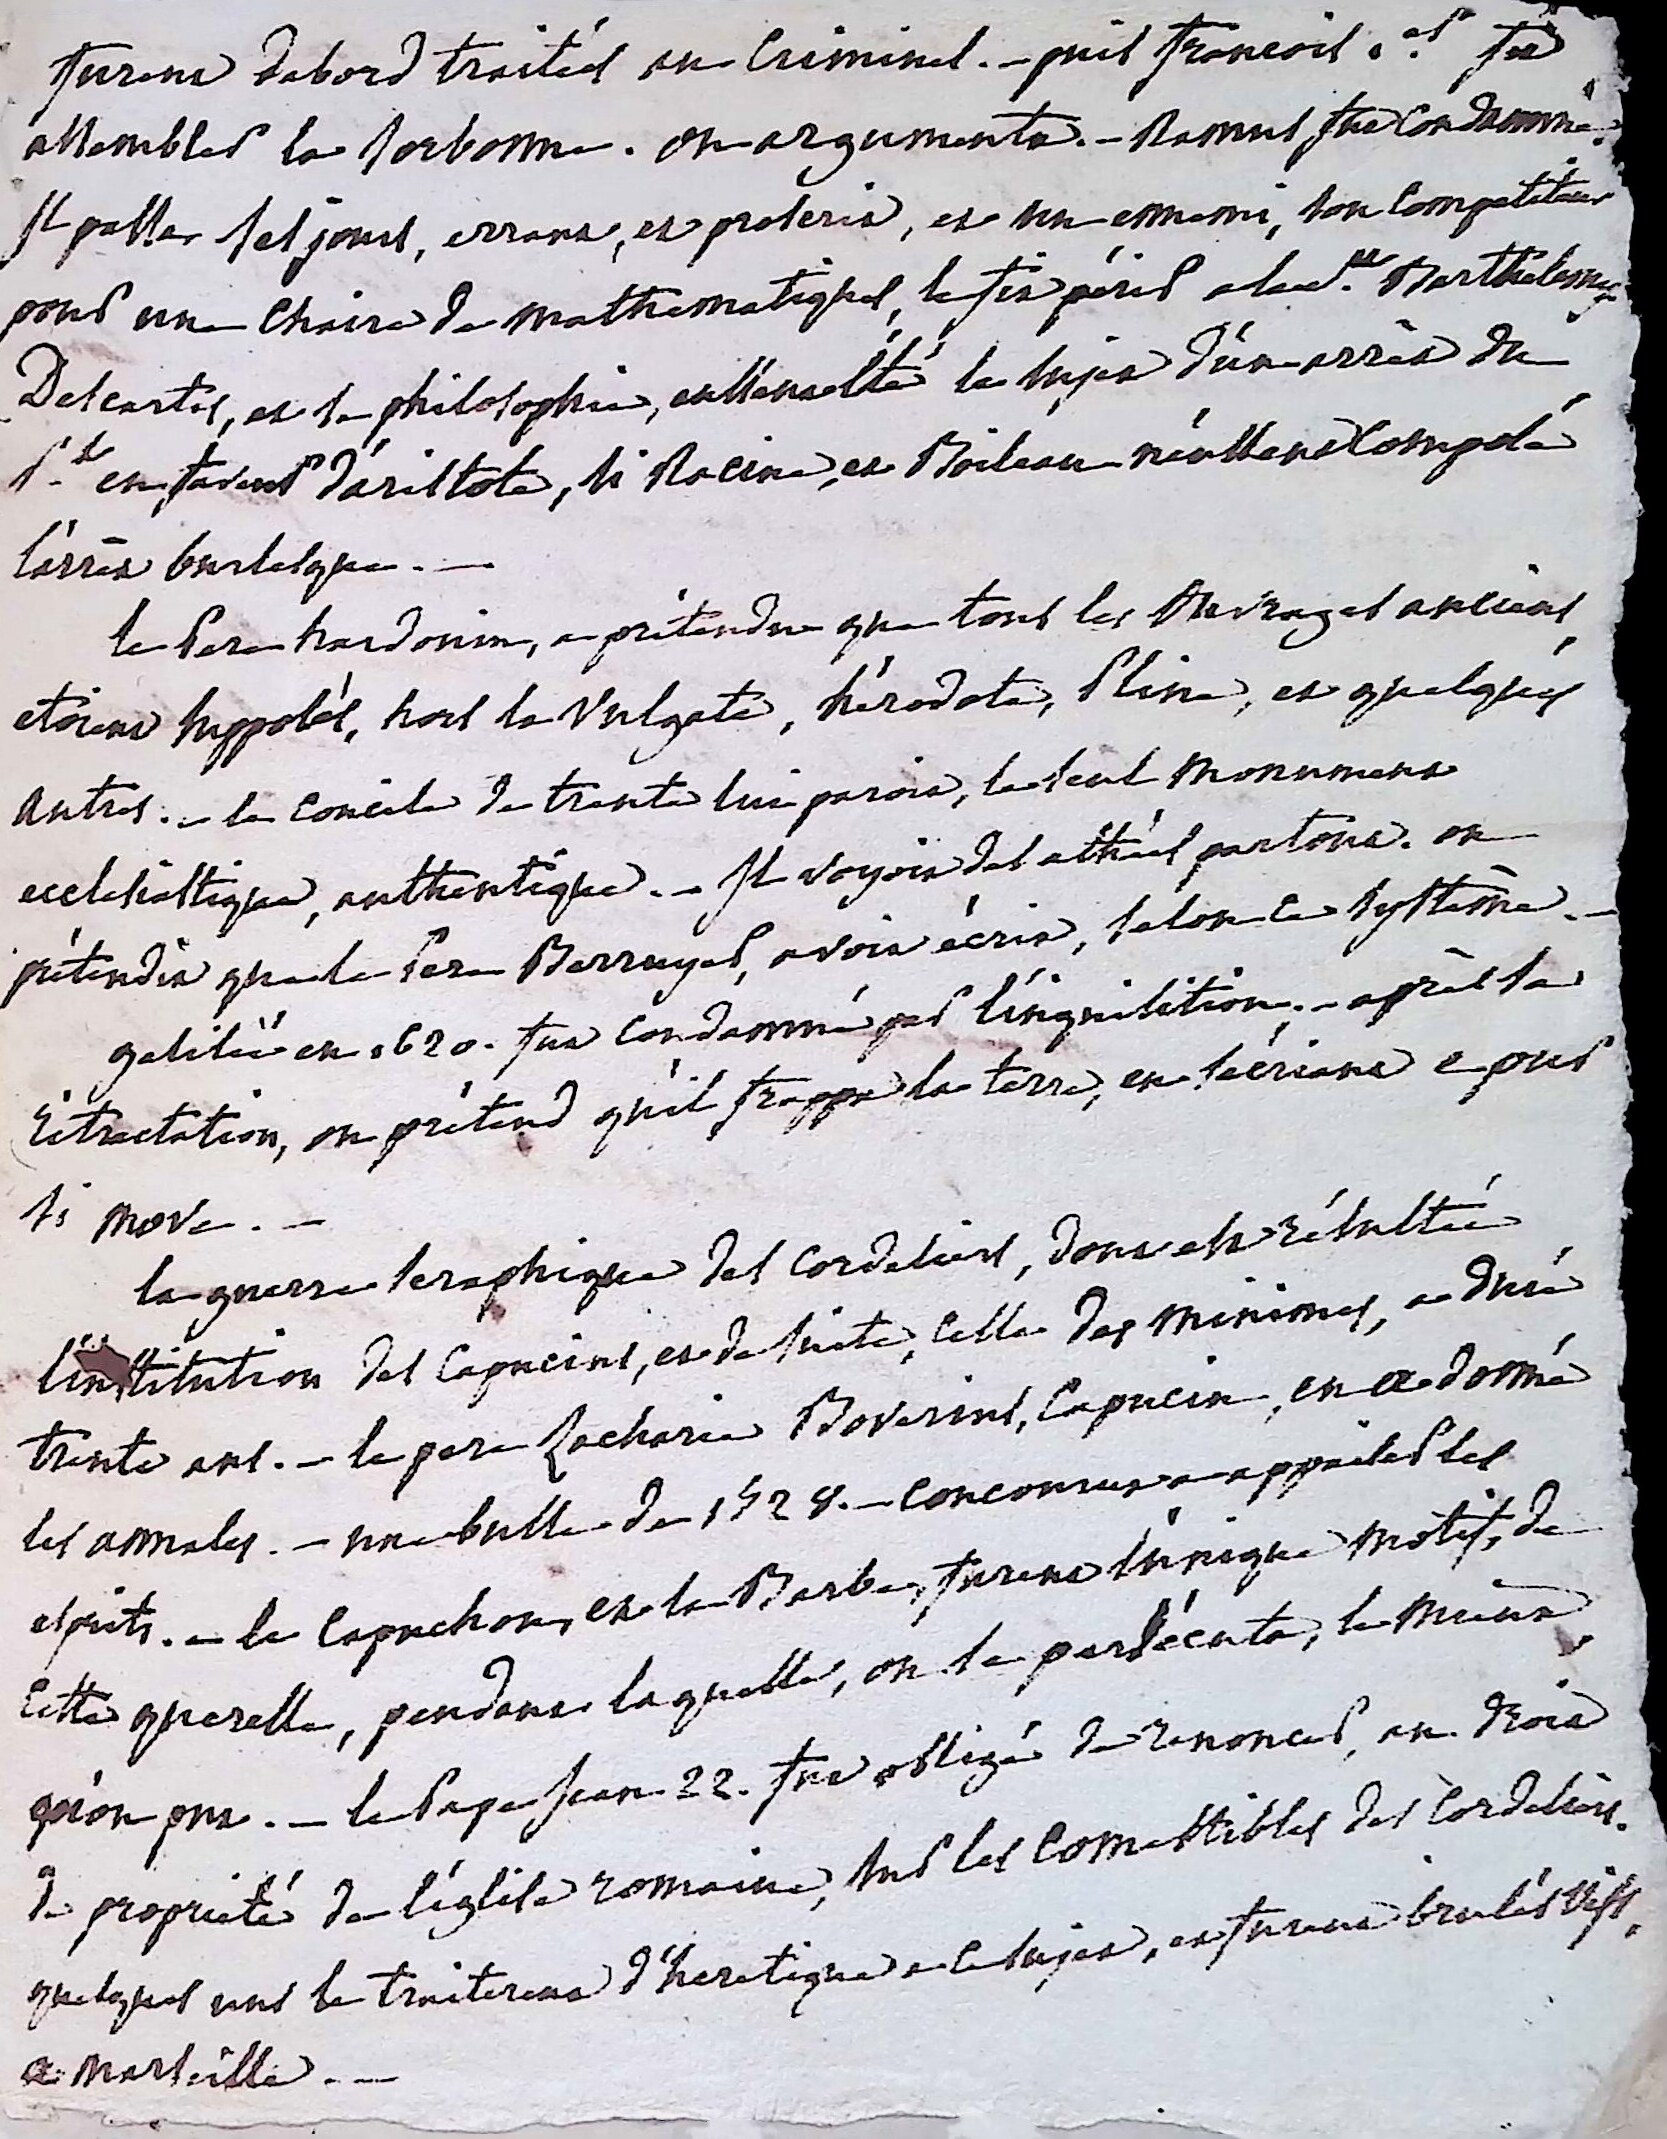 furent dabord traités au Criminel. - puis francois 1.er fit
assembler la sorbonne. on argumenta. - Ramus fut Condamné.
Il passa ses jours, errant, et proscrit, et un ennemi, son Compétiteur
pour une Chaire de mathematiques, le fit périr a la s.t Barthelemy.
Descartes, et sa philosophie, eussent été le sujet d'un arrêt du
P.t en faveur d'aristote, si Racine, et Boileau n'eussent Composé
l'arrêt burlesque. —
le Pere hardouin, a prétendu que tous les Ouvrages anciens,
étoient supposés, hors la Vulgate, hérodote, Pline, et quelques
autres. - le concile de trente lui paroit, le seul Monument
ecclesiastique, authentique. - Il voyoit des athées partout. on
prétendit que le Pere Berruyer, avoit écrit, selon ce système. -
galilée en 1620. fut condamné par l'inquisition. - après sa
rétractation, on prétend qu'il frappa la terre, en s'écriant e pur
si move. —
la guerre seraphique des cordeliers, dont est résultée
l'institution des Capucins, et de suite, celle des minimes, a duré
trente ans. - le pere Zacharie Boverius, Capucin, en a donné
les annales. - une bulle de 1528. - concourut a appaiser les
esprits. - le Capuchon, et la Barbe, furent l'unique motif, de
Cette querelle, pendant laquelle, on se persécuta, le mieux
qu'on put. - le Pape Jean 22. fut obligé de renoncer, au droit
de propriété de l'église romaine, sur les comestibles des Cordeliers.
quelques uns le traiterent d'heretique a ce sujet, et furent brulés vifs,
a marseille. —